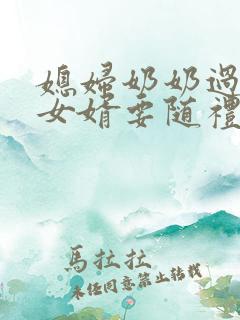 媳婦奶奶過
女婿要随禮
馬拉拉
未經同意禁止轉載